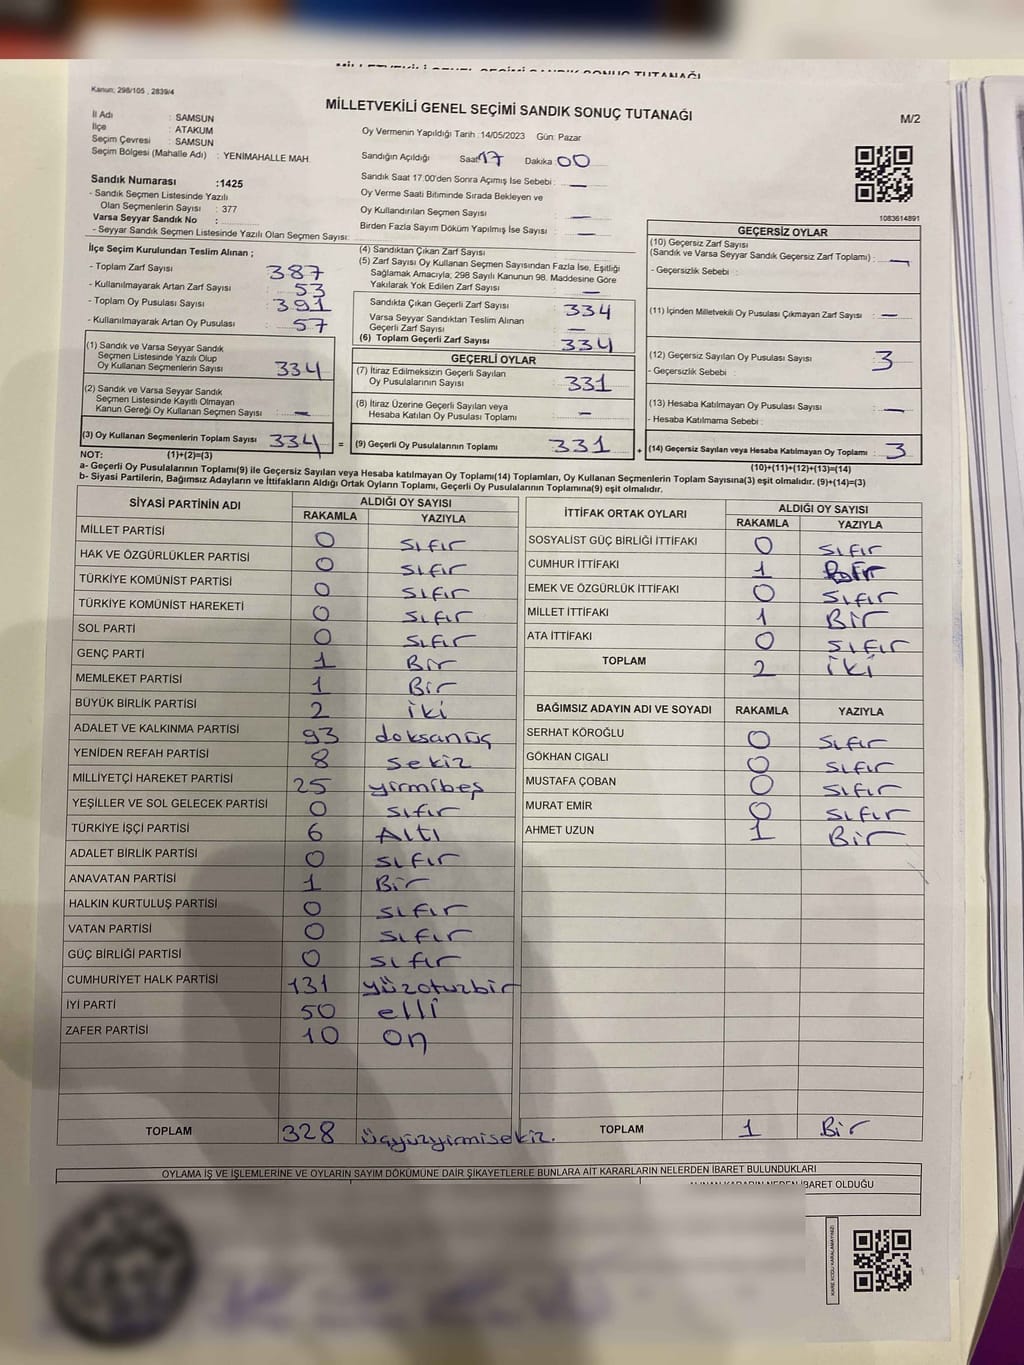 MİLLETVEKİLİ GENEL SEÇİMİ SANDIK SONUÇ TUTANAĞI
Kanun; 298/105 , 2839/4
MİLLETVEKİLİ GENEL SEÇİMİ SANDIK SONUÇ TUTANAĞI
M/2
İl Adı : SAMSUN
İlçe : ATAKUM
Seçim Çevresi : SAMSUN
Seçim Bölgesi (Mahalle Adı) : YENİMAHALLE MAH.
Oy Vermenin Yapıldığı Tarih :14/05/2023 Gün: Pazar
Sandığın Açıldığı Saat 17 Dakika 00
Sandık Saat 17.00'den Sonra Açımış İse Sebebi : —
Oy Verme Saati Bitiminde Sırada Bekleyen ve
Oy Kullandırılan Seçmen Sayısı : —
Birden Fazla Sayım Döküm Yapılmış İse Sayısı : —
Sandık Numarası :1425
- Sandık Seçmen Listesinde Yazılı
Olan Seçmenlerin Sayısı : 377
Varsa Seyyar Sandık No :
- Seyyar Sandık Seçmen Listesinde Yazılı Olan Seçmen Sayısı:
1083614891
İlçe Seçim Kurulundan Teslim Alınan ;
- Toplam Zarf Sayısı : 387
- Kullanılmayarak Artan Zarf Sayısı : 53
- Toplam Oy Pusulası Sayısı : 391
- Kullanılmayarak Artan Oy Pusulası : 57
(1) Sandık ve Varsa Seyyar Sandık
Seçmen Listesinde Yazılı Olup
Oy Kullanan Seçmenlerin Sayısı : 334
(2) Sandık ve Varsa Seyyar Sandık
Seçmen Listesinde Kayıtlı Olmayan
Kanun Gereği Oy Kullanan Seçmen Sayısı : —
(3) Oy Kullanan Seçmenlerin Toplam Sayısı : 334 =
(4) Sandıktan Çıkan Zarf Sayısı
(5) Zarf Sayısı Oy Kullanan Seçmen Sayısından Fazla İse, Eşitliği
Sağlamak Amacıyla; 298 Sayılı Kanunun 98. Maddesine Göre
Yakılarak Yok Edilen Zarf Sayısı : —
Sandıkta Çıkan Geçerli Zarf Sayısı : 334
Varsa Seyyar Sandıktan Teslim Alınan
Geçerli Zarf Sayısı : —
(6) Toplam Geçerli Zarf Sayısı : 334
GEÇERLİ OYLAR
(7) İtiraz Edilmeksizin Geçerli Sayılan
Oy Pusulalarının Sayısı : 331
(8) İtiraz Üzerine Geçerli Sayılan veya
Hesaba Katılan Oy Pusulası Toplamı : —
(9) Geçerli Oy Pusulalarının Toplamı : 331 +
GEÇERSİZ OYLAR
(10) Geçersiz Zarf Sayısı
(Sandık ve Varsa Seyyar Sandık Geçersiz Zarf Toplamı) : —
- Geçersizlik Sebebi :
(11) İçinden Milletvekili Oy Pusulası Çıkmayan Zarf Sayısı : —
(12) Geçersiz Sayılan Oy Pusulası Sayısı : 3
- Geçersizlik Sebebi :
(13) Hesaba Katılmayan Oy Pusulası Sayısı : —
- Hesaba Katılmama Sebebi :
(14) Geçersiz Sayılan veya Hesaba Katılmayan Oy Toplamı : 3
NOT: (1)+(2)=(3) (10)+(11)+(12)+(13)=(14)
a- Geçerli Oy Pusulalarının Toplamı(9) ile Geçersiz Sayılan veya Hesaba katılmayan Oy Toplamı(14) Toplamları, Oy Kullanan Seçmenlerin Toplam Sayısına(3) eşit olmalıdır. (9)+(14)=(3)
b- Siyasi Partilerin, Bağımsız Adayların ve İttifakların Aldığı Ortak Oyların Toplamı, Geçerli Oy Pusulalarının Toplamına(9) eşit olmalıdır.
SİYASİ PARTİNİN ADI ALDIĞI OY SAYISI
RAKAMLA YAZIYLA
MİLLET PARTİSİ 0 sıfır
HAK VE ÖZGÜRLÜKLER PARTİSİ 0 sıfır
TÜRKİYE KOMÜNİST PARTİSİ 0 sıfır
TÜRKİYE KOMÜNİST HAREKETİ 0 sıfır
SOL PARTİ 0 sıfır
GENÇ PARTİ 1 Bir
MEMLEKET PARTİSİ 1 Bir
BÜYÜK BİRLİK PARTİSİ 2 iki
ADALET VE KALKINMA PARTİSİ 93 doksanüç
YENİDEN REFAH PARTİSİ 8 sekiz
MİLLİYETÇİ HAREKET PARTİSİ 25 yirmibeş
YEŞİLLER VE SOL GELECEK PARTİSİ 0 sıfır
TÜRKİYE İŞÇİ PARTİSİ 6 Altı
ADALET BİRLİK PARTİSİ 0 sıfır
ANAVATAN PARTİSİ 1 Bir
HALKIN KURTULUŞ PARTİSİ 0 sıfır
VATAN PARTİSİ 0 sıfır
GÜÇ BİRLİĞİ PARTİSİ 0 sıfır
CUMHURİYET HALK PARTİSİ 131 yüzotuzbir
İYİ PARTİ 50 elli
ZAFER PARTİSİ 10 on
TOPLAM 328 üçyüzyirmisekiz.
İTTİFAK ORTAK OYLARI ALDIĞI OY SAYISI
RAKAMLA YAZIYLA
SOSYALİST GÜÇ BİRLİĞİ İTTİFAKI 0 sıfır
CUMHUR İTTİFAKI 1 Bir
EMEK VE ÖZGÜRLÜK İTTİFAKI 0 sıfır
MİLLET İTTİFAKI 1 Bir
ATA İTTİFAKI 0 sıfır
TOPLAM 2 iki
BAĞIMSIZ ADAYIN ADI VE SOYADI RAKAMLA YAZIYLA
SERHAT KÖROĞLU 0 sıfır
GÖKHAN CIGALI 0 sıfır
MUSTAFA ÇOBAN 0 sıfır
MURAT EMİR 0 sıfır
AHMET UZUN 1 Bir
TOPLAM 1 Bir
OYLAMA İŞ VE İŞLEMLERİNE VE OYLARIN SAYIM DÖKÜMÜNE DAİR ŞİKAYETLERLE BUNLARA AİT KARARLARIN NELERDEN İBARET BULUNDUKLARI
ALINAN KARARIN NEDEN İBARET OLDUĞU
KARE KODU KARALAMAYINIZ!